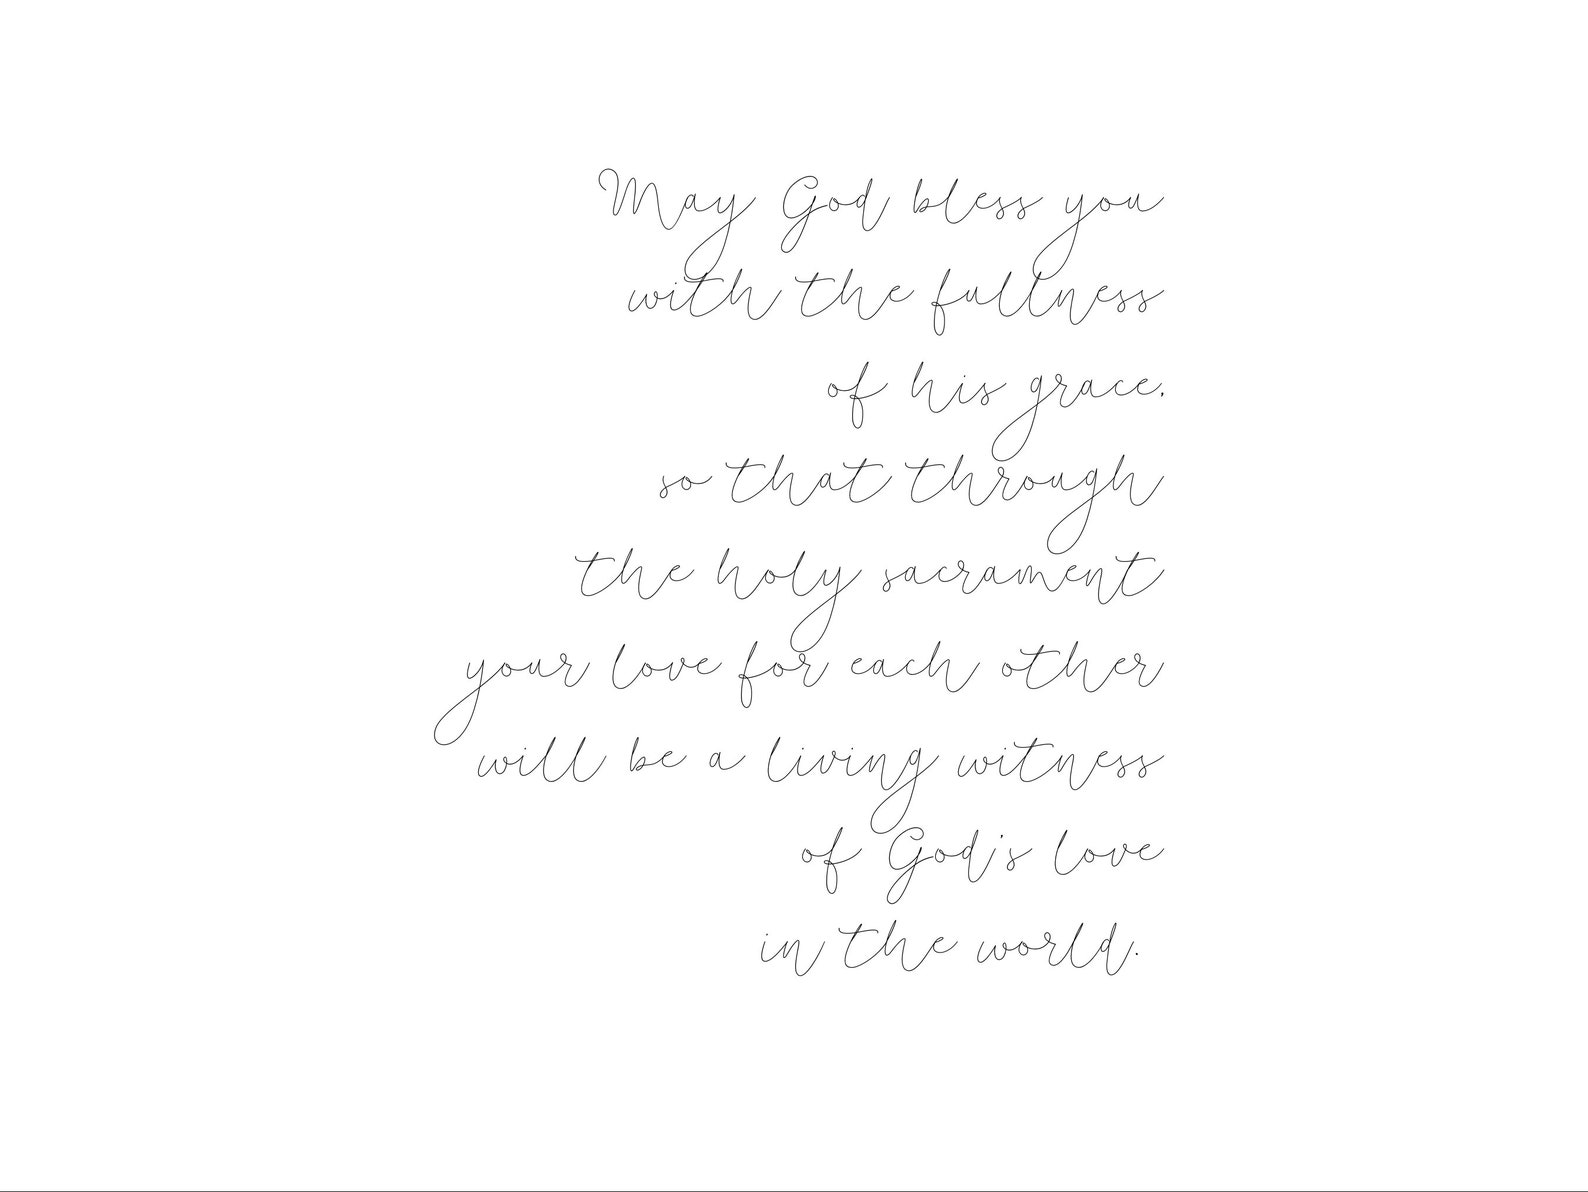 May God bless you
with the fullness
of his grace,
so that through
the holy sacrament
your love for each other
will be a living witness
of God's love
in the world.